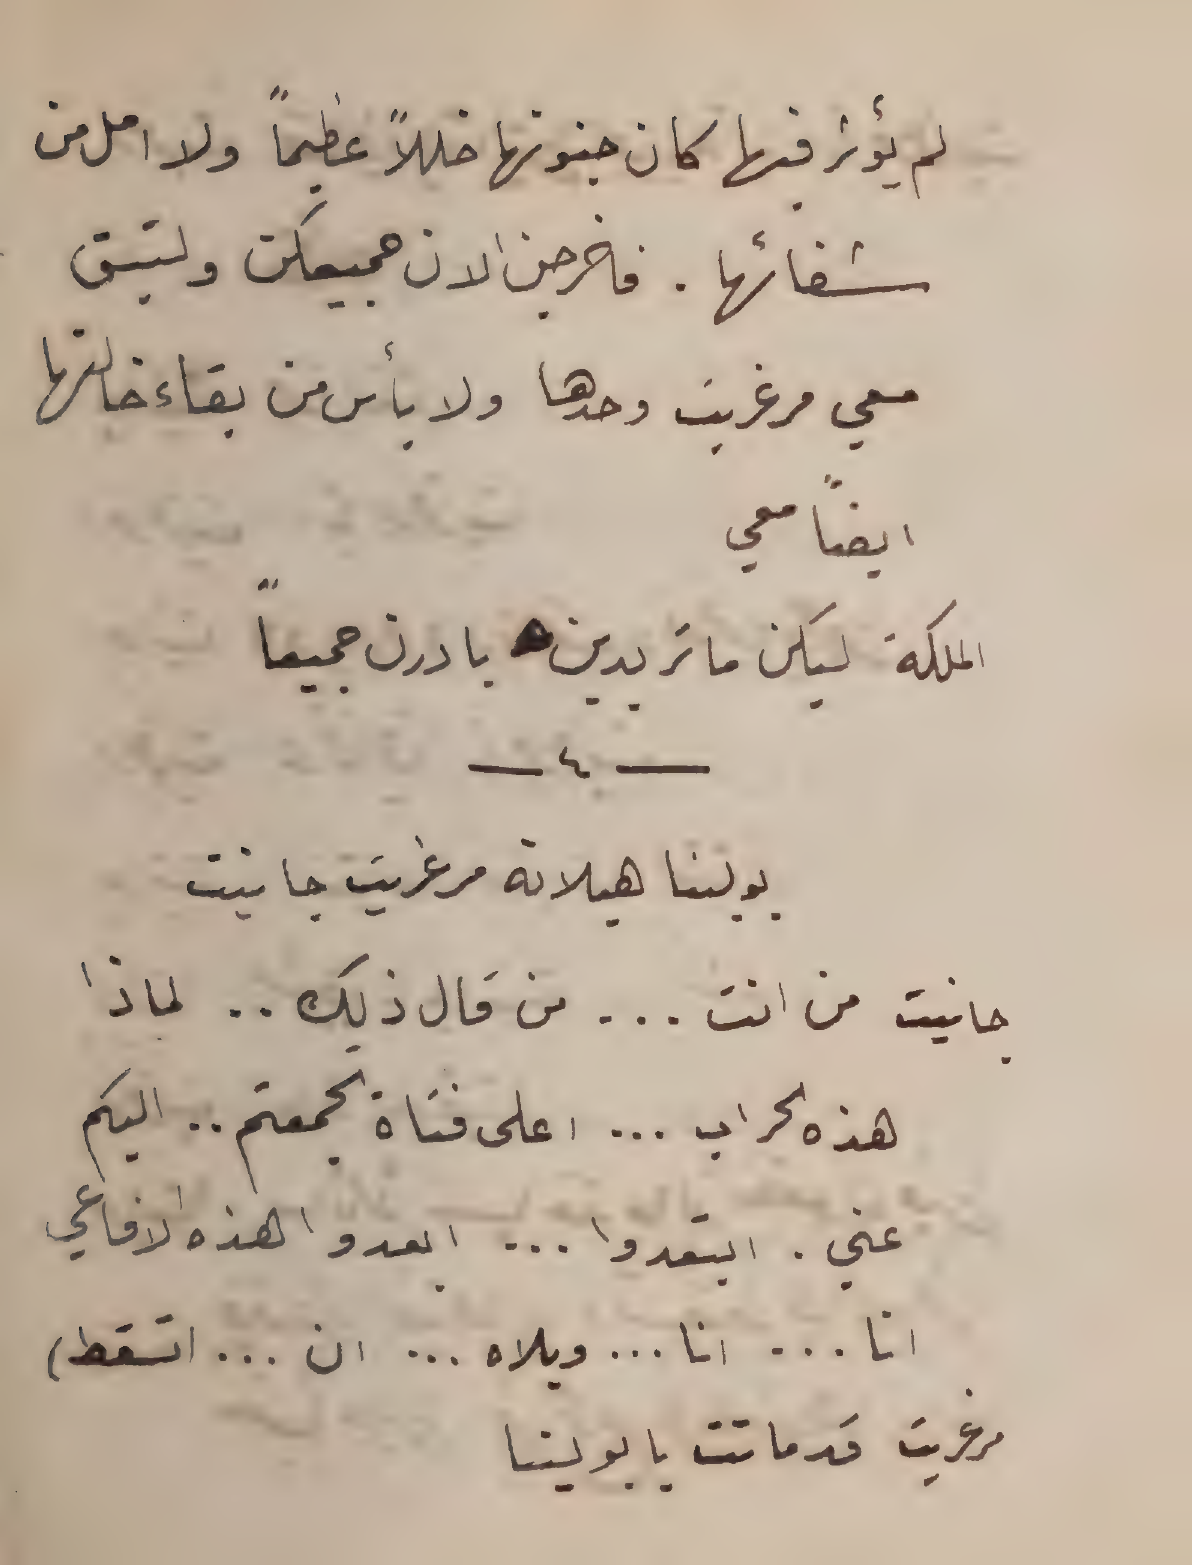 لم يؤثر فيها كان جنونها خللاً عظيماً ولا امل من
شفائها . فاخرجن الان جميعكن ولتبق
معي مرغريت وحدها ولا بأس من بقاء خالتها
ايضاً معي
الملكة ليكن ما تريدين بادرن جميعاً
— ٤ —
بولينا هيلانة مرغريت جانيت
جانيت من انت ... من قال ذلك .. لماذا
هذه الحراب ... اعلى فتاة تجمعتم .. اليكم
عني . ابتعدوا ... ابعدوا هذه الافاعي
انا ... انا ... ويلاه ... ان ... اتسقط)
مرغريت قد ماتت يا بولينا